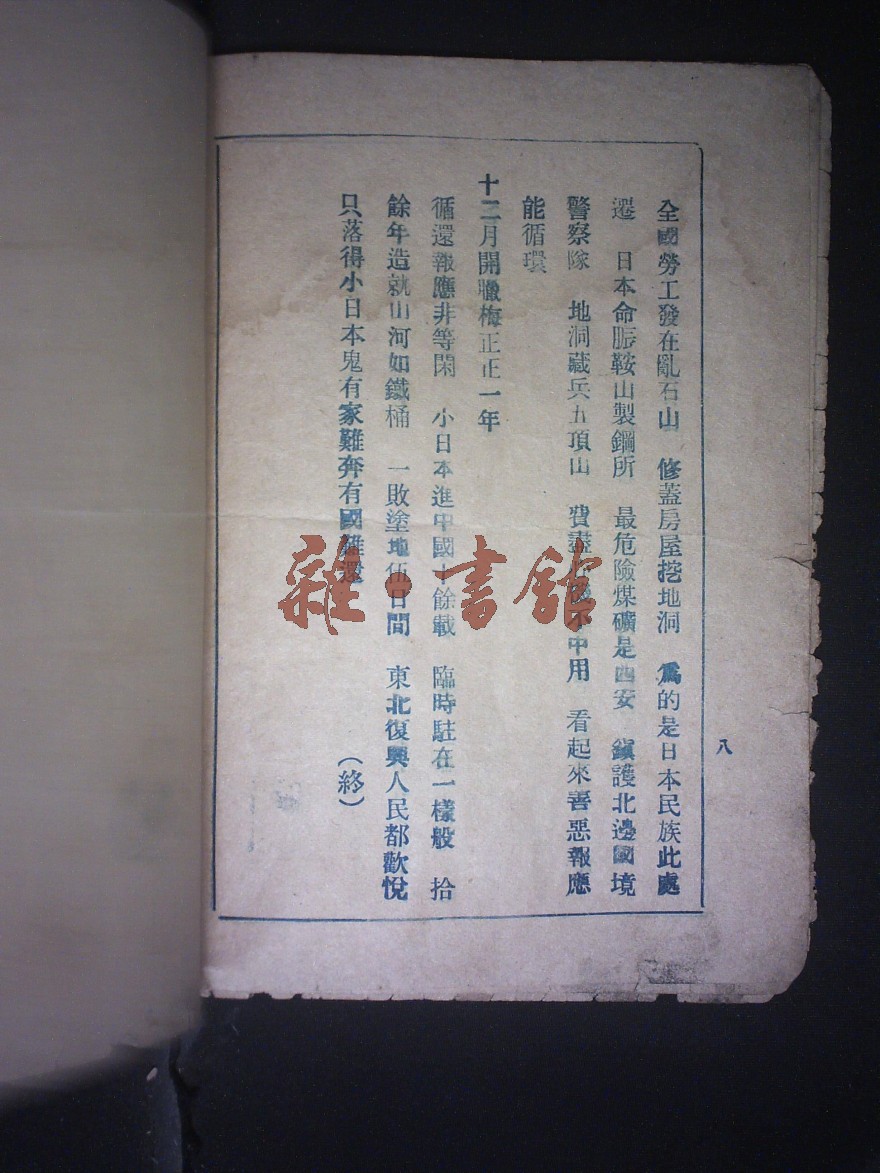 全國勞工發在亂石山　修蓋房屋挖地洞　爲的是日本民族此處
遷　日本命脈鞍山製鋼所　最危險煤礦是西安　鎭護北邊國境
警察隊　地洞藏兵五頂山　費盡不中用　看起來善惡報應
能循環
十二月開臘梅正正一年
循還報應非等閑　小日本進中國十餘載　臨時駐在一樣般　拾
餘年造就山河如鐵桶　一敗塗地伍日間　東北復興人民都歡悅
只落得小日本鬼有家難奔有國難還
（終）
八
雜·書館